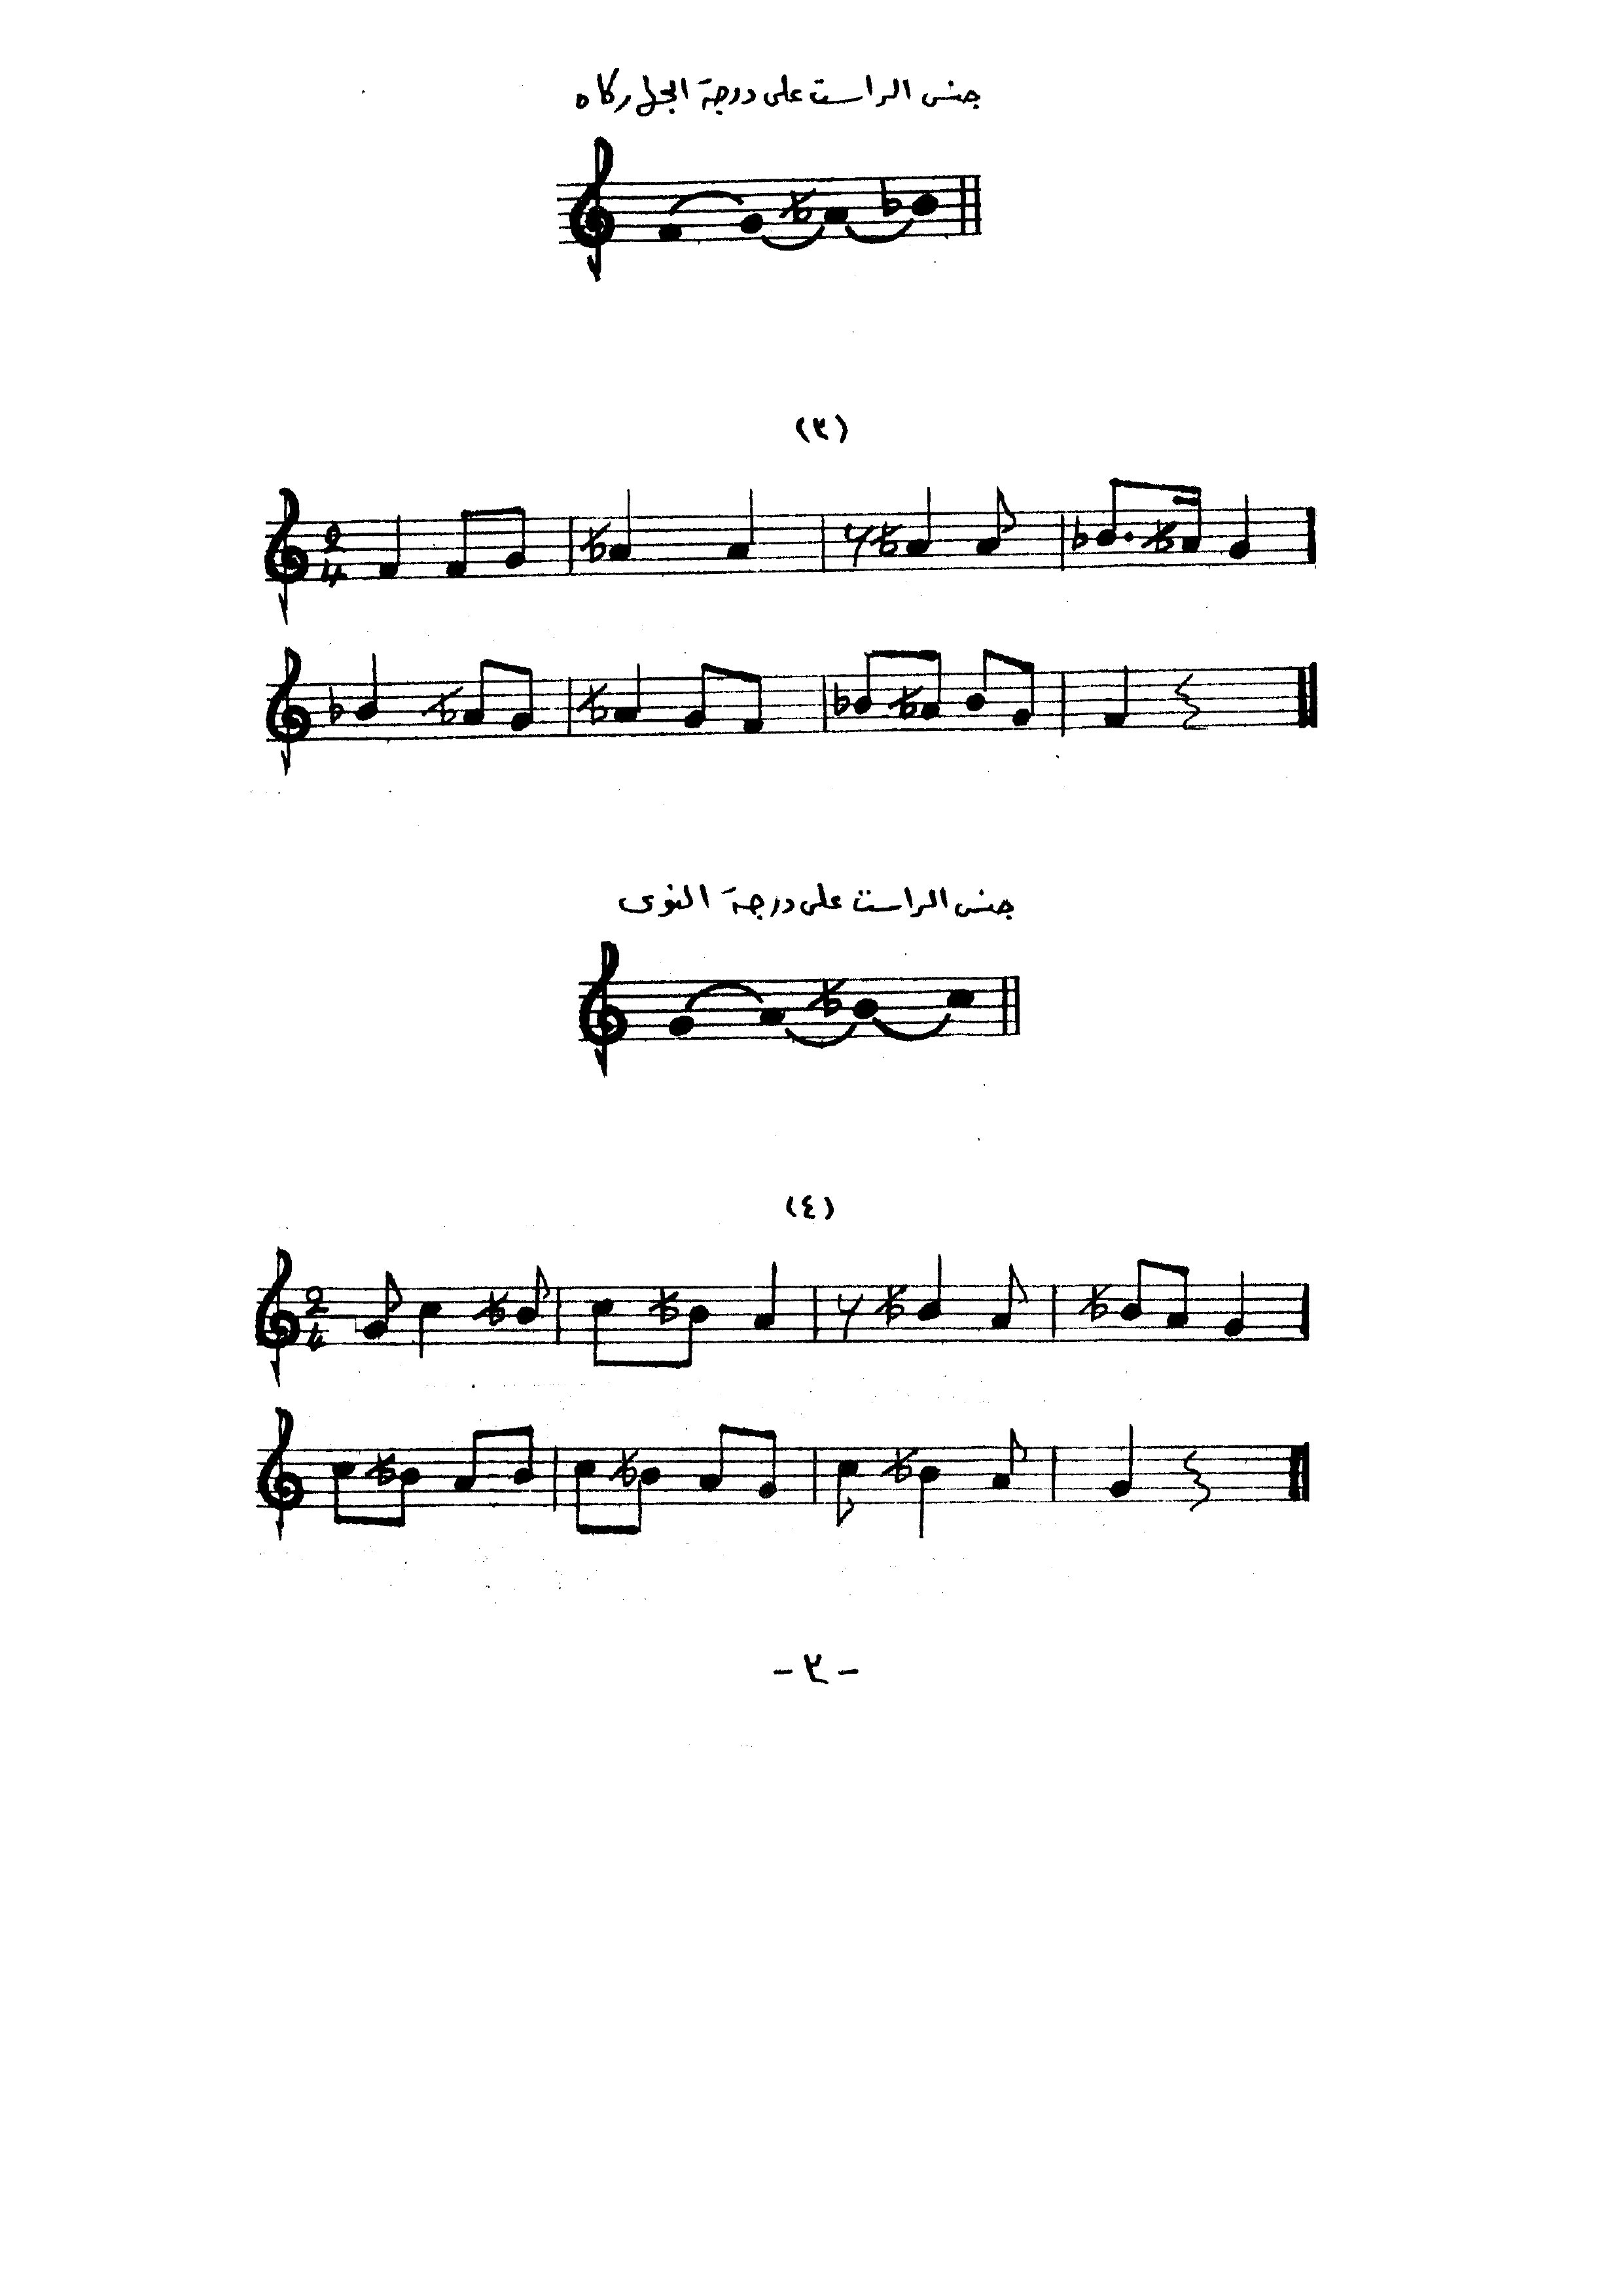 جنس الراست على درجة الجهاركاه
(٣)
2
4
جنس الراست على درجة النوى
(٤)
2
4
- ٢ -